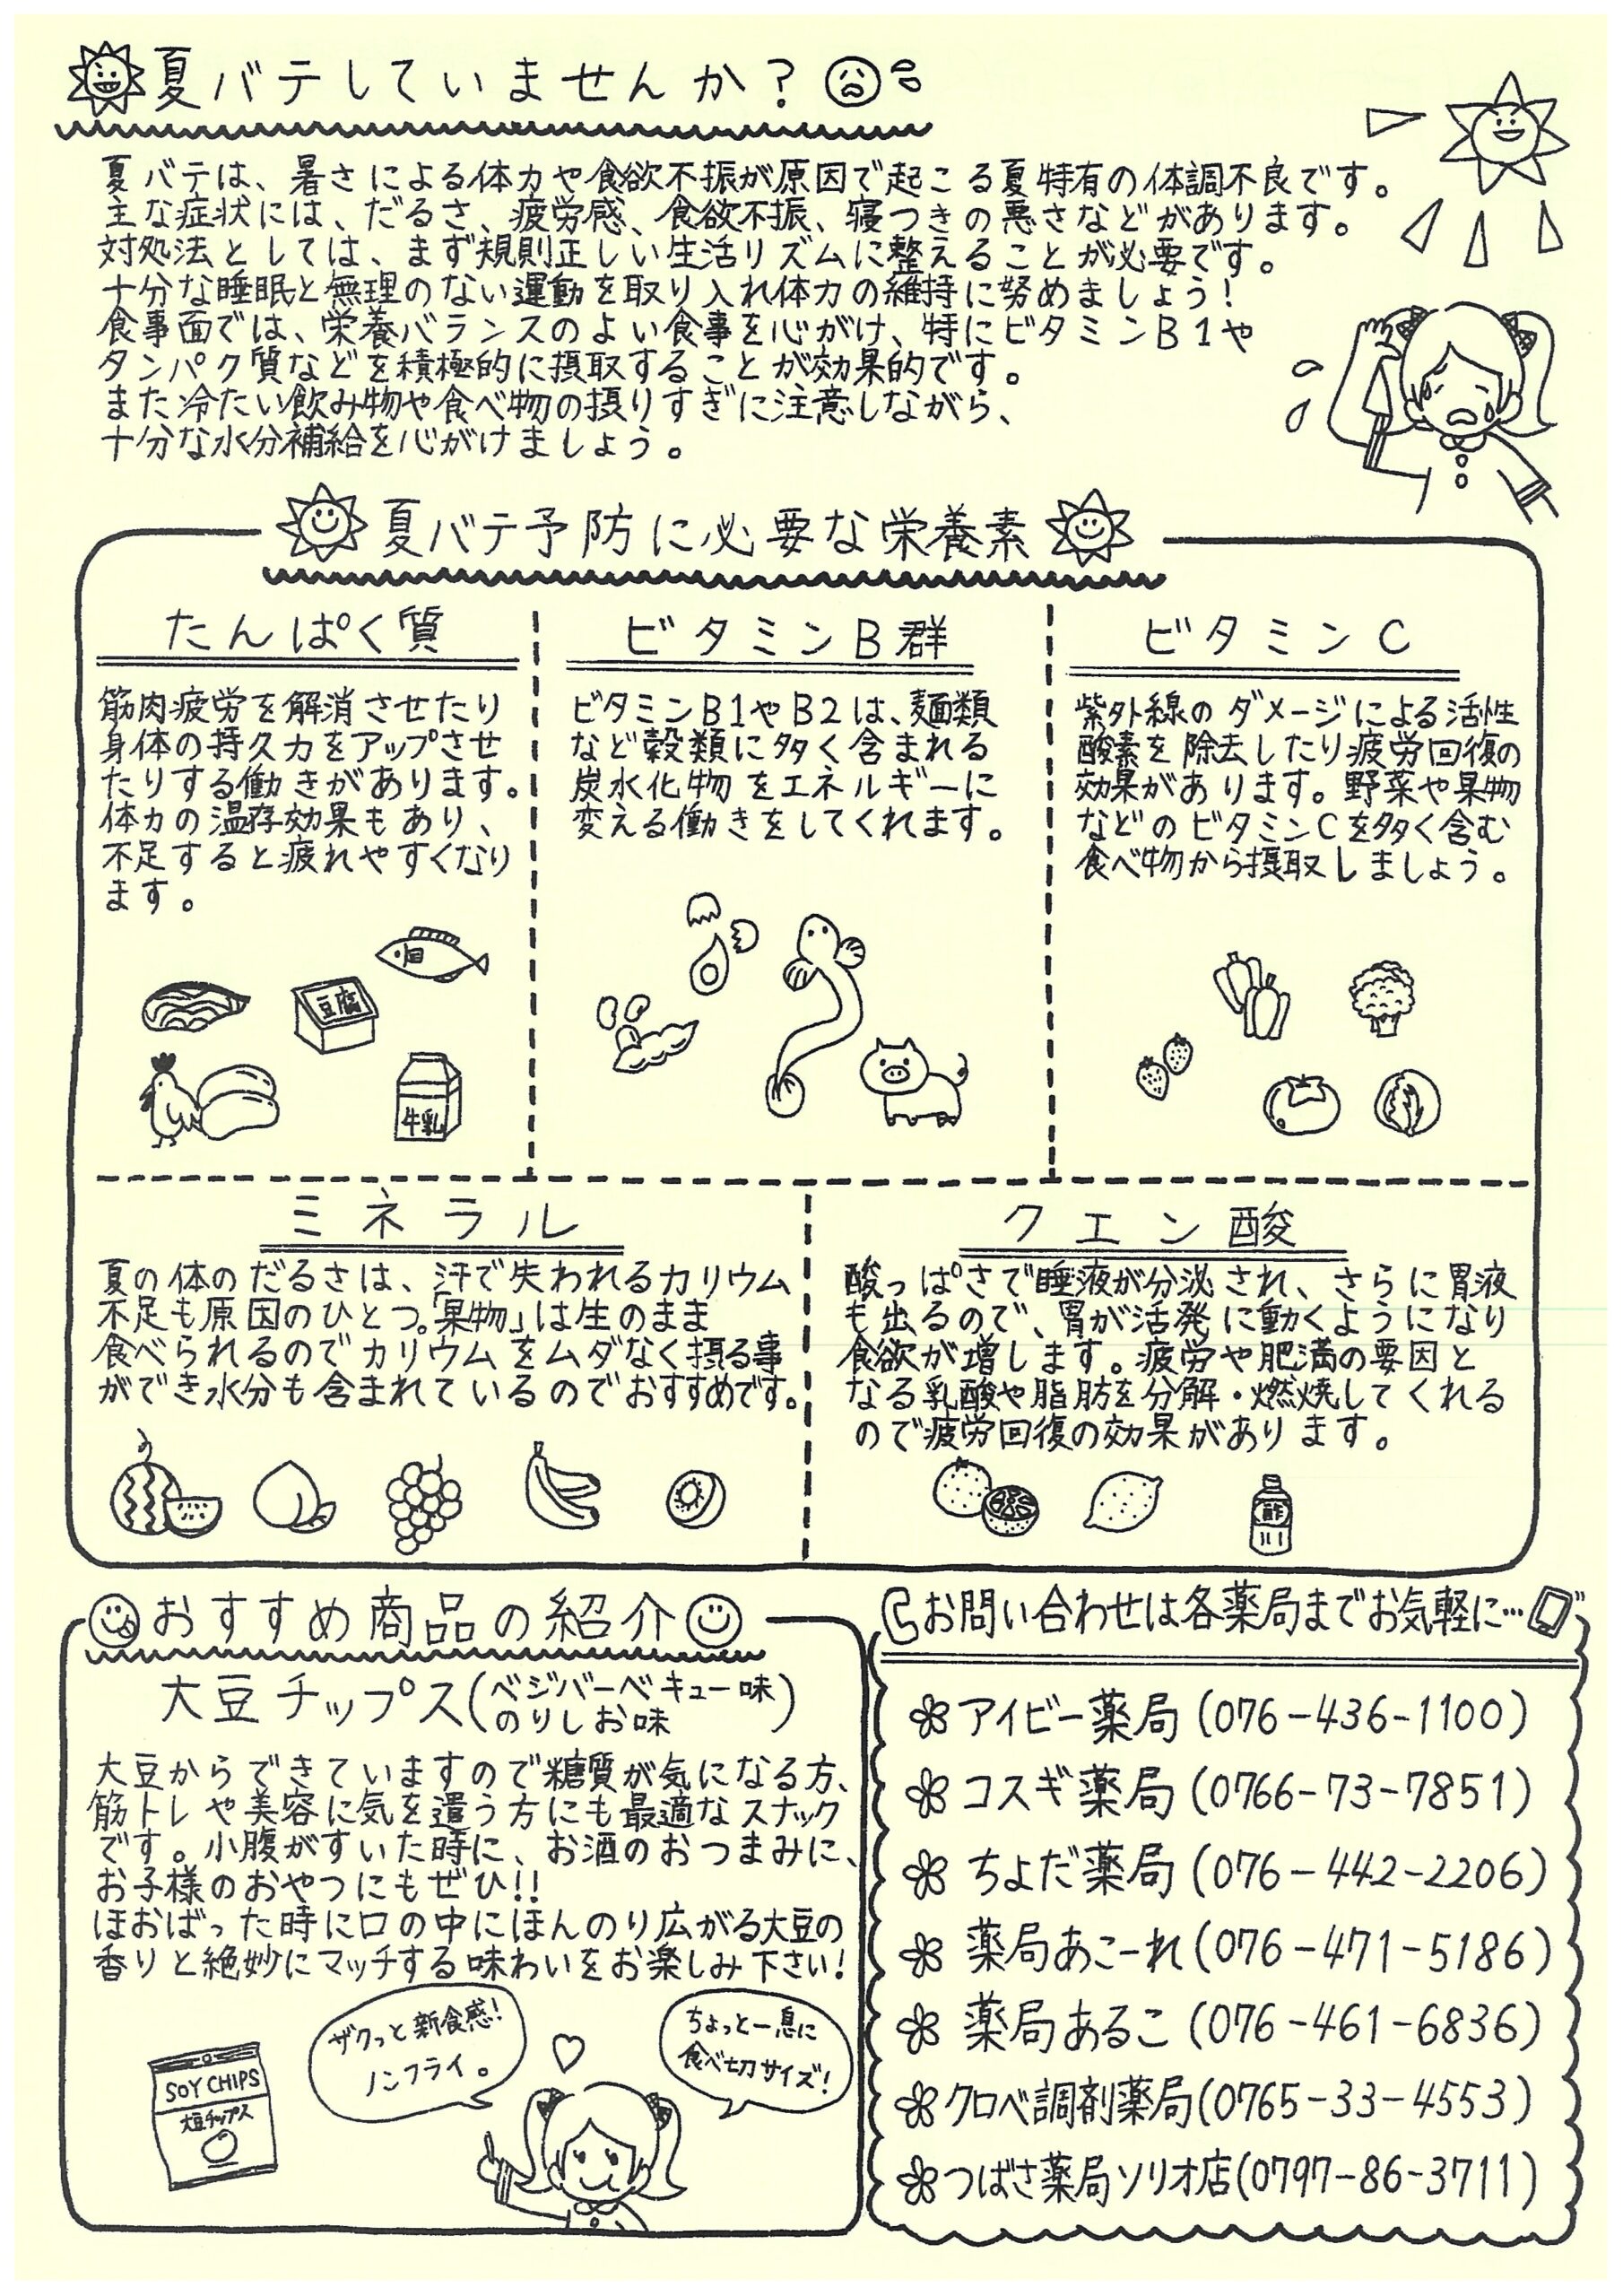 夏バテしていませんか？
夏バテは、暑さによる体力や食欲不振が原因で起こる夏特有の体調不良です。
主な症状には、だるさ、疲労感、食欲不振、寝つきの悪さなどがあります。
対処法としては、まず規則正しい生活リズムに整えることが必要です。
十分な睡眠と無理のない運動を取り入れ体力の維持に努めましょう！
食事面では、栄養バランスのよい食事を心がけ、特にビタミンB1や
タンパク質などを積極的に摂取することが効果的です。
また冷たい飲み物や食べ物の摂りすぎに注意しながら、
十分な水分補給を心がけましょう。
夏バテ予防に必要な栄養素
たんぱく質
筋肉疲労を解消させたり
身体の持久力をアップさせ
たりする働きがあります。
体力の温存効果もあり、
不足すると疲れやすくなり
ます。
豆腐
牛乳
ビタミンB群
ビタミンB1やB2は、麺類
など穀類に多く含まれる
炭水化物をエネルギーに
変える働きをしてくれます。
ビタミンC
紫外線のダメージによる活性
酸素を除去したり疲労回復の
効果があります。野菜や果物
などのビタミンCを多く含む
食べ物から摂取しましょう。
ミネラル
夏の体のだるさは、汗で失われるカリウム
不足も原因のひとつ。「果物」は生のまま
食べられるのでカリウムをムダなく摂る事
ができ水分も含まれているのでおすすめです。
クエン酸
酸っぱさで唾液が分泌され、さらに胃液
も出るので、胃が活発に動くようになり
食欲が増します。疲労や肥満の要因と
なる乳酸や脂肪を分解・燃焼してくれる
ので疲労回復の効果があります。
酢
おすすめ商品の紹介
大豆チップス(ベジバーベキュー味
のりしお味)
大豆からできていますので糖質が気になる方、
筋トレや美容に気を遣う方にも最適なスナック
です。小腹がすいた時に、お酒のおつまみに、
お子様のおやつにもぜひ!!
ほおばった時に口の中にほんのり広がる大豆の
香りと絶妙にマッチする味わいをお楽しみ下さい！
ザクっと新食感！
ノンフライ。
ちょっと一息に
食べ切サイズ！
SOY CHIPS
大豆チップス
お問い合わせは各薬局までお気軽に…
アイビー薬局(076-436-1100)
コスギ薬局(0766-73-7851)
ちよだ薬局(076-442-2206)
薬局あこーれ(076-471-5186)
薬局あるこ(076-461-6836)
クロベ調剤薬局(0765-33-4553)
つばさ薬局ソリオ店(0797-86-3711)